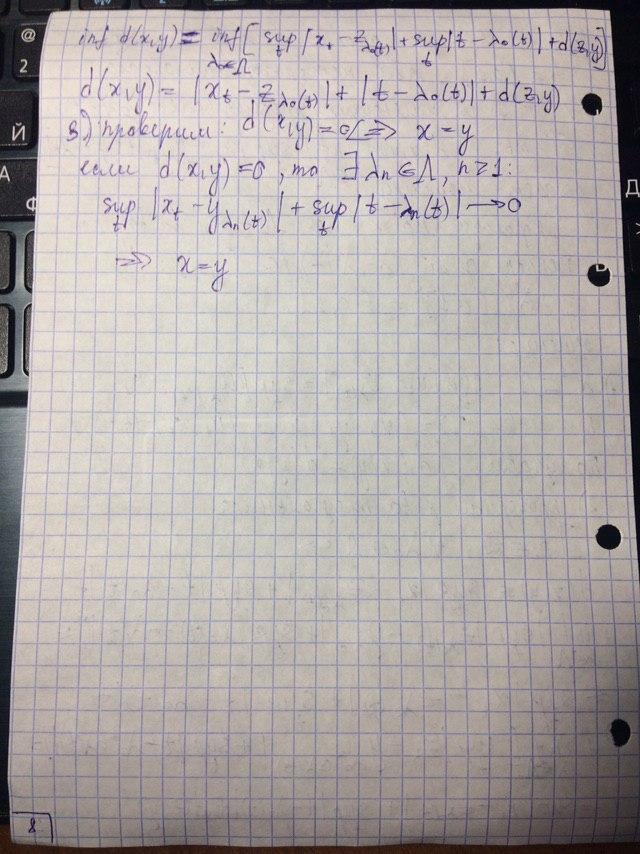 inf d(x,y) = inf_{λ₀∈Λ} [ sup_t |x_t - z_{λ₀(t)}| + sup_t |t - λ₀(t)| + d(z,y) ]
d(x,y) = |x_t - z_{λ₀(t)}| + |t - λ₀(t)| + d(z,y)
3) проверим: d(x,y) = 0 ⟺ x = y
если d(x,y) = 0, то ∃ λ_n ∈ Λ, n ≥ 1:
sup_t |x_t - y_{λ_n(t)}| + sup_t |t - λ_n(t)| → 0
⟹ x = y
8
@
2
Й
А
Ф